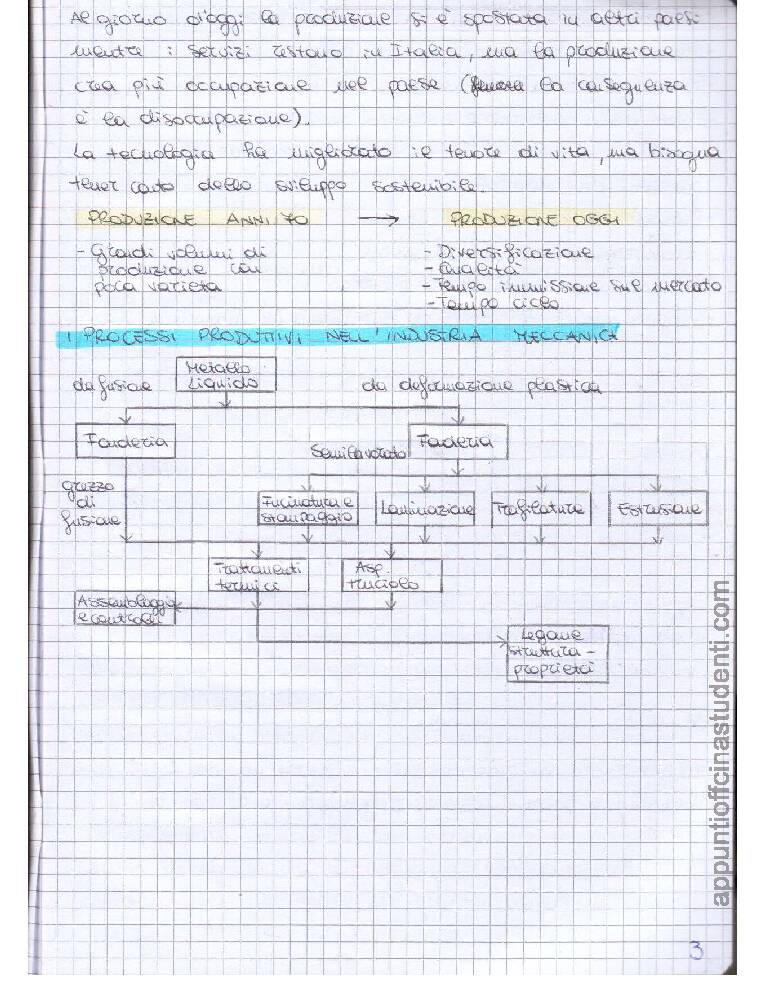 Al giorno d'oggi la produzione si è spostata in altri paesi
mentre i servizi restano in Italia, ma la produzione
crea più occupazione nel paese ( la conseguenza
è la disoccupazione).
La tecnologia ha migliorato il tenore di vita, ma bisogna
tener conto dello sviluppo sostenibile.
PRODUZIONE ANNI 70 → PRODUZIONE OGGI
- Grandi volumi di
produzione con
poca varietà
- Diversificazione
- Qualità
- Tempo immissione sul mercato
- Tempo ciclo
I PROCESSI PRODUTTIVI NELL'INDUSTRIA MECCANICA
da fusione
Metallo
liquido
da deformazione plastica
Fonderia
Semilavorato
Fonderia
grezzo
di
fusione
Fucinatura e
stampaggio
Laminazione
Trafilatura
Estrusione
Trattamenti
termici
Asp.
truciolo
Assemblaggio
e controlli
Legame
struttura-
proprietà
appuntioffcinastudenti.com
3